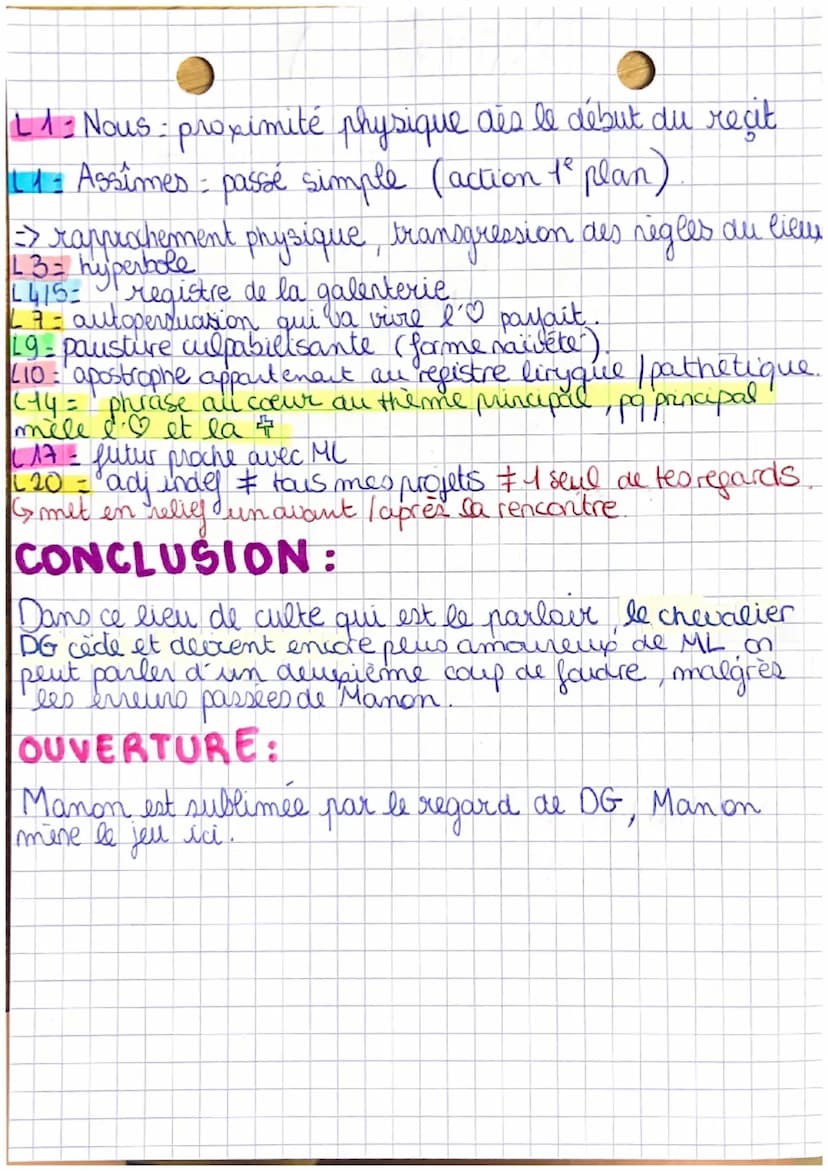 L1= Nous = proximité physique dès le début du reçit
L1= Assîmes = passé simple (action 1e plan).
=> rapprochement physique, transgression des règles du lieux
L3= hyperbole
L4/5= registre de la galenterie
L7= autopersuasion qui va vivre l'♡ parfait.
L9= pausture culpabielisante (forme naïvété).
L10= apostrophe appartenait au registre liryque / pathétique.
L14= phrase au cœur du thème principal, pg principal
mêle l'♡ et la ✝
L17= futur proche avec ML
L20 = adj indef ≠ tous mes projets ≠ 1 seul de tes regards.
↳ met en relief un avant / après la rencontre.
CONCLUSION :
Dans ce lieu de culte qui est le parloir, le chevalier
DG cède et devient encore plus amoureux de ML, on
peut parler d'un deuxième coup de foudre, malgrès
les erreurs passées de Manon.
OUVERTURE :
Manon est sublimée par le regard de DG, Manon
mène le jeu ici.